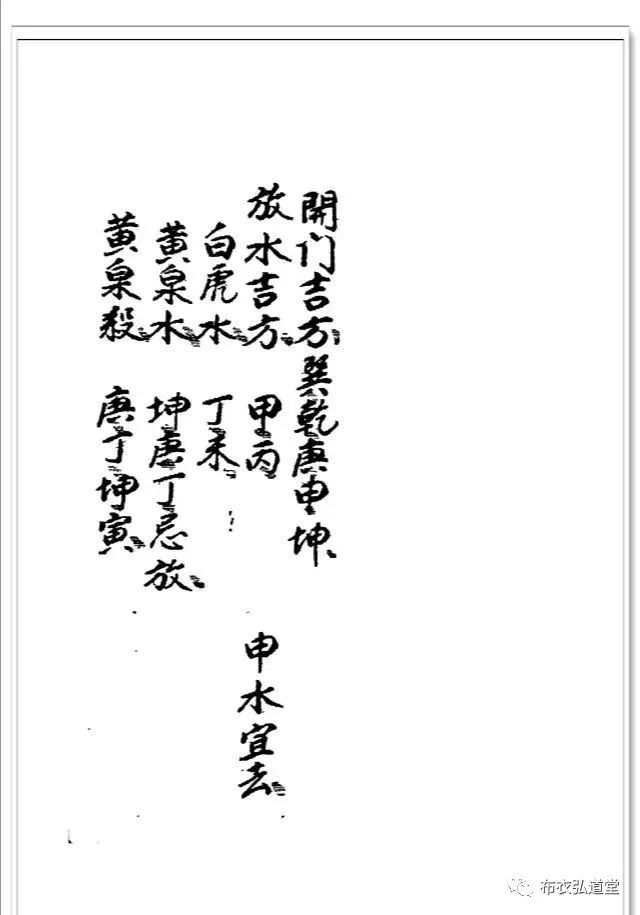 開门吉方巽乾庚申坤
放水吉方甲丙 申水宜去
白虎水丁未
黃泉水坤庚丁忌放
黃泉殺庚丁坤寅
布衣弘道堂